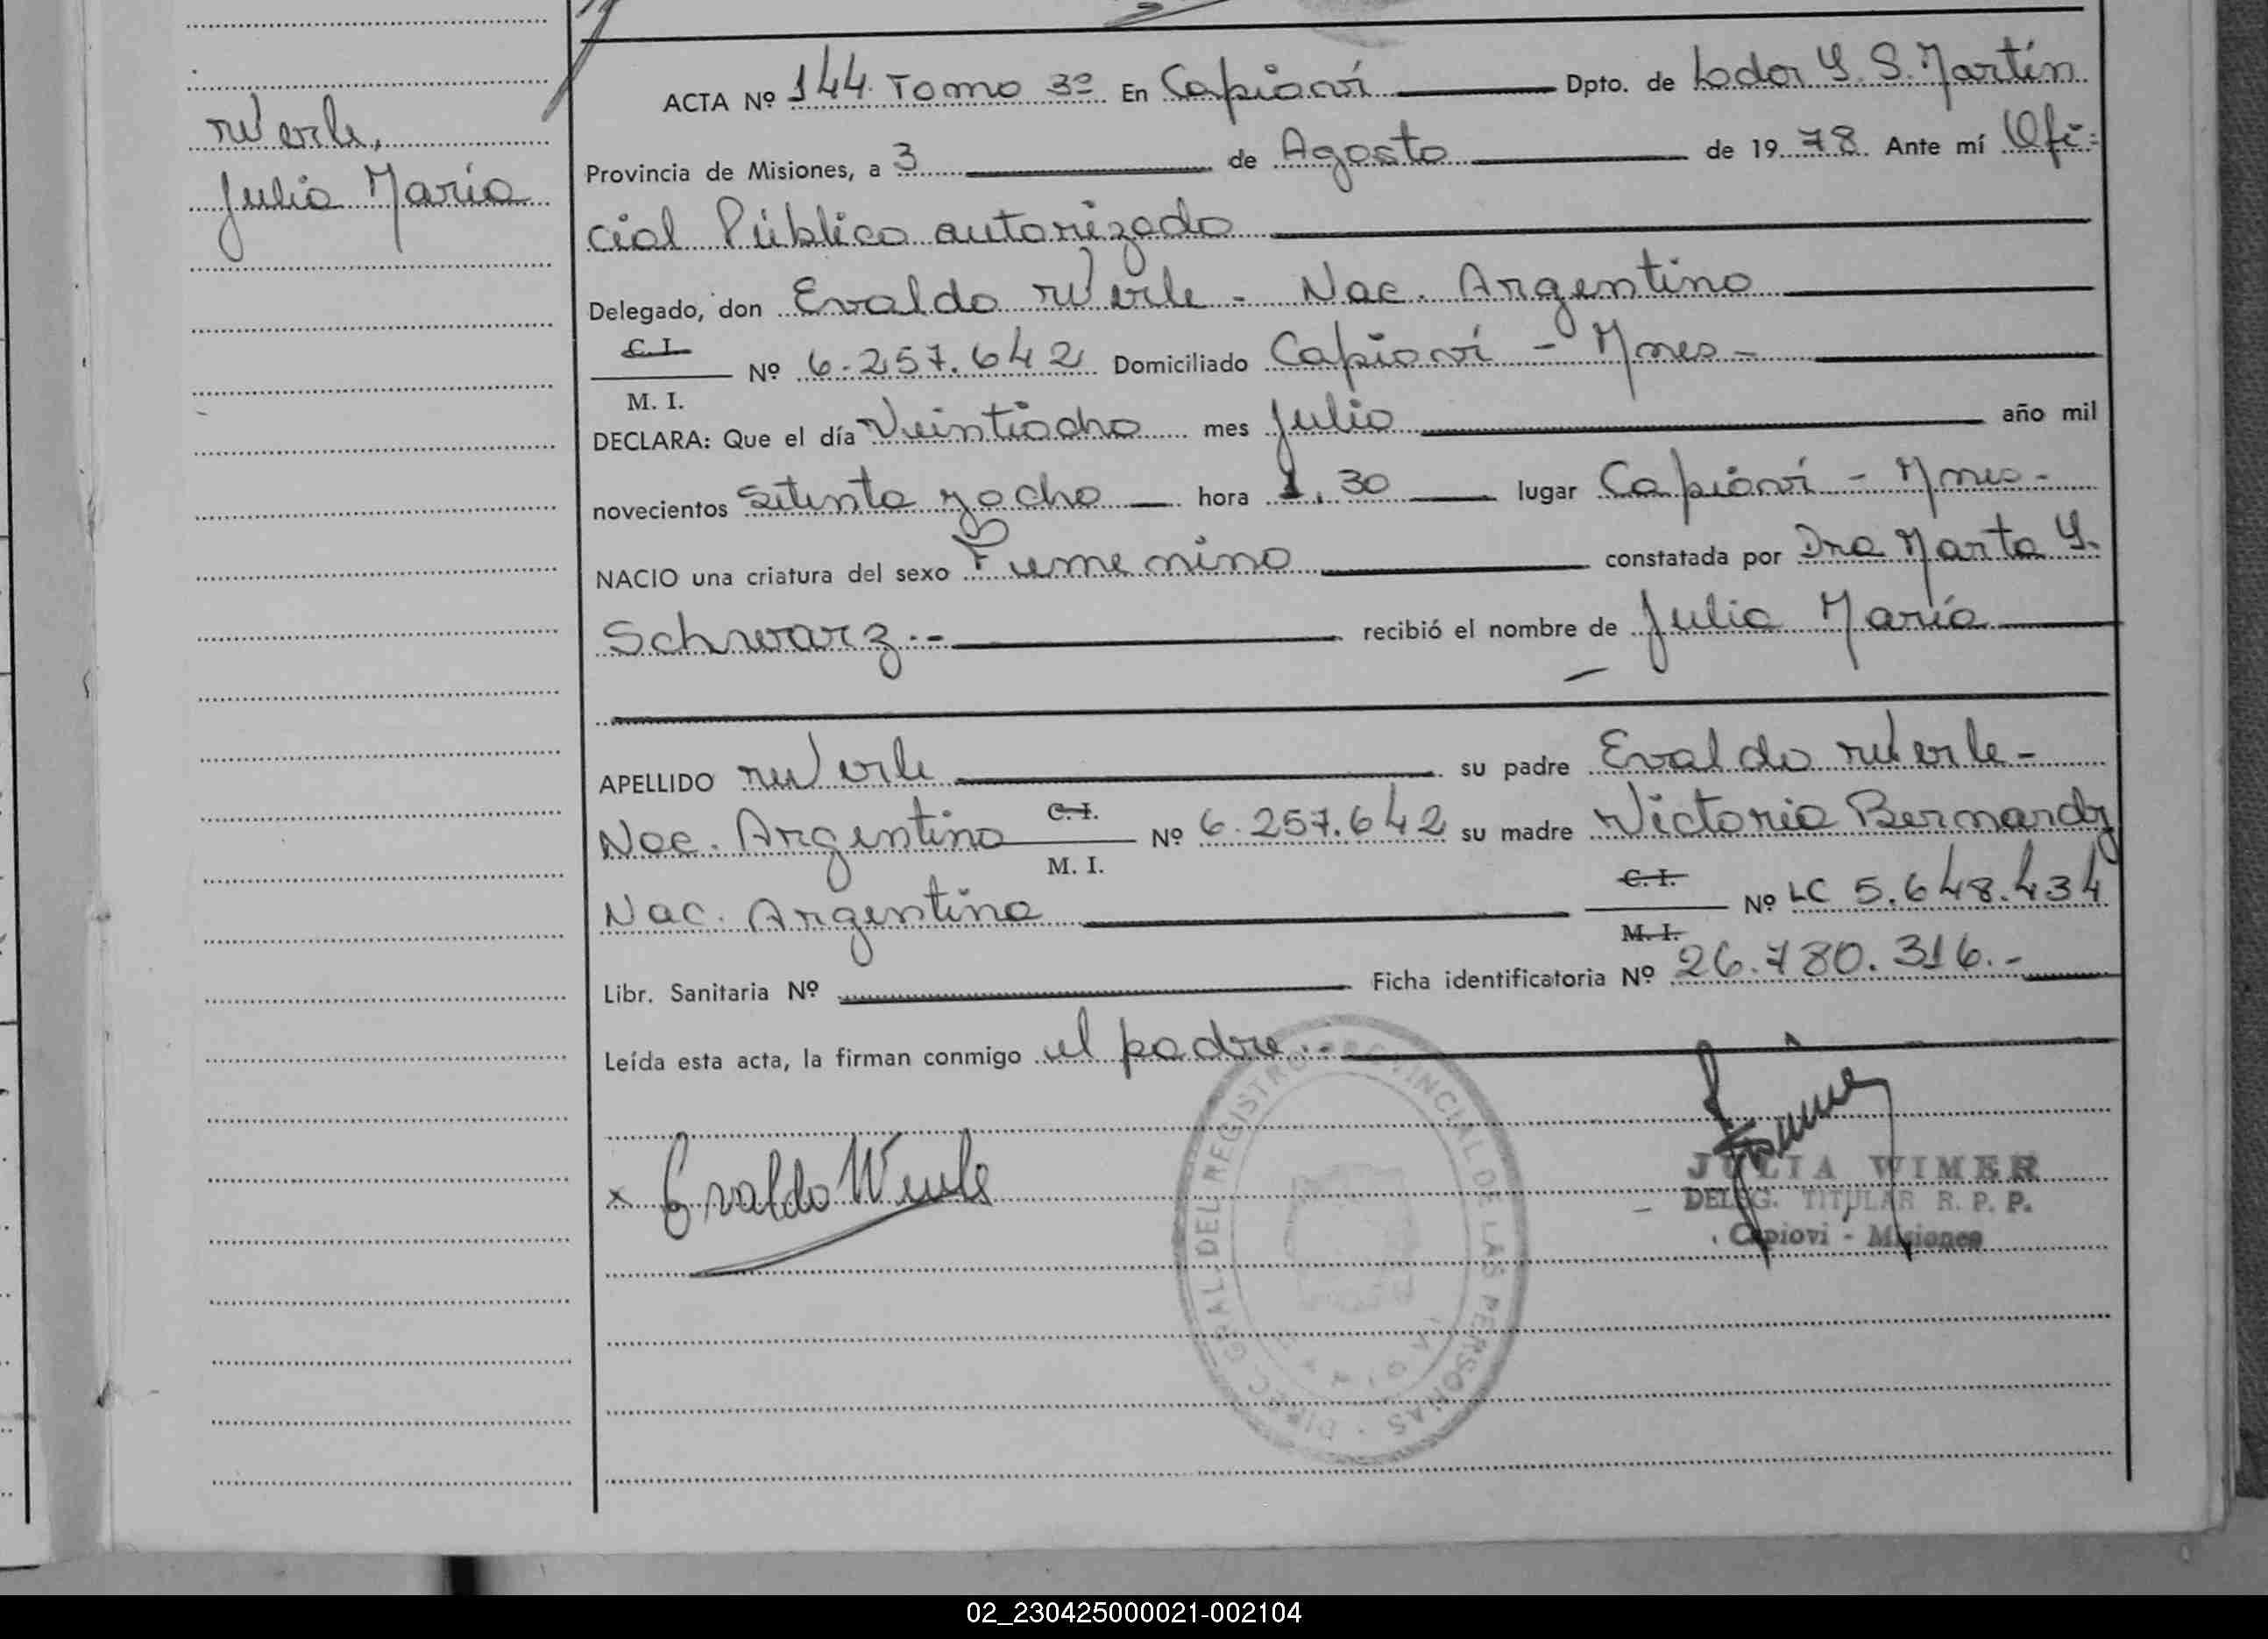 Werle,
Julia María
ACTA Nº 144 Tomo 3º En Capioví Dpto. de Lodor G. S. Martín
Provincia de Misiones, a 3 de Agosto de 1978 Ante mí Ofi=
cial Público autorizado
Delegado, don Evaldo Werle - Nac. Argentino
C. I.
Nº 6.257.642 Domiciliado Capioví - Mnes -
M. I.
DECLARA: Que el día Veintiocho mes Julio año mil
novecientos setenta y ocho hora 1.30 lugar Capioví - Mnes -
NACIO una criatura del sexo Femenino constatada por Dra Marta G.
Schwarz.- recibió el nombre de Julia María
APELLIDO Werle su padre Evaldo Werle -
Nac. Argentino C. I. Nº 6.257.642 su madre Victoria Bernardy
M. I.
Nac. Argentina C. I. Nº LC 5.648.434
M. I.
Libr. Sanitaria Nº Ficha identificatoria Nº 26.780.316.-
Leída esta acta, la firman conmigo el padre.-
x Evaldo Werle
JULIA WIMER
DELEG. TITULAR R. P. P.
Capiovi - Misiones
DIREC. GRAL. DEL REGISTRO PROVINCIAL DE LAS PERSONAS
02_230425000021-002104